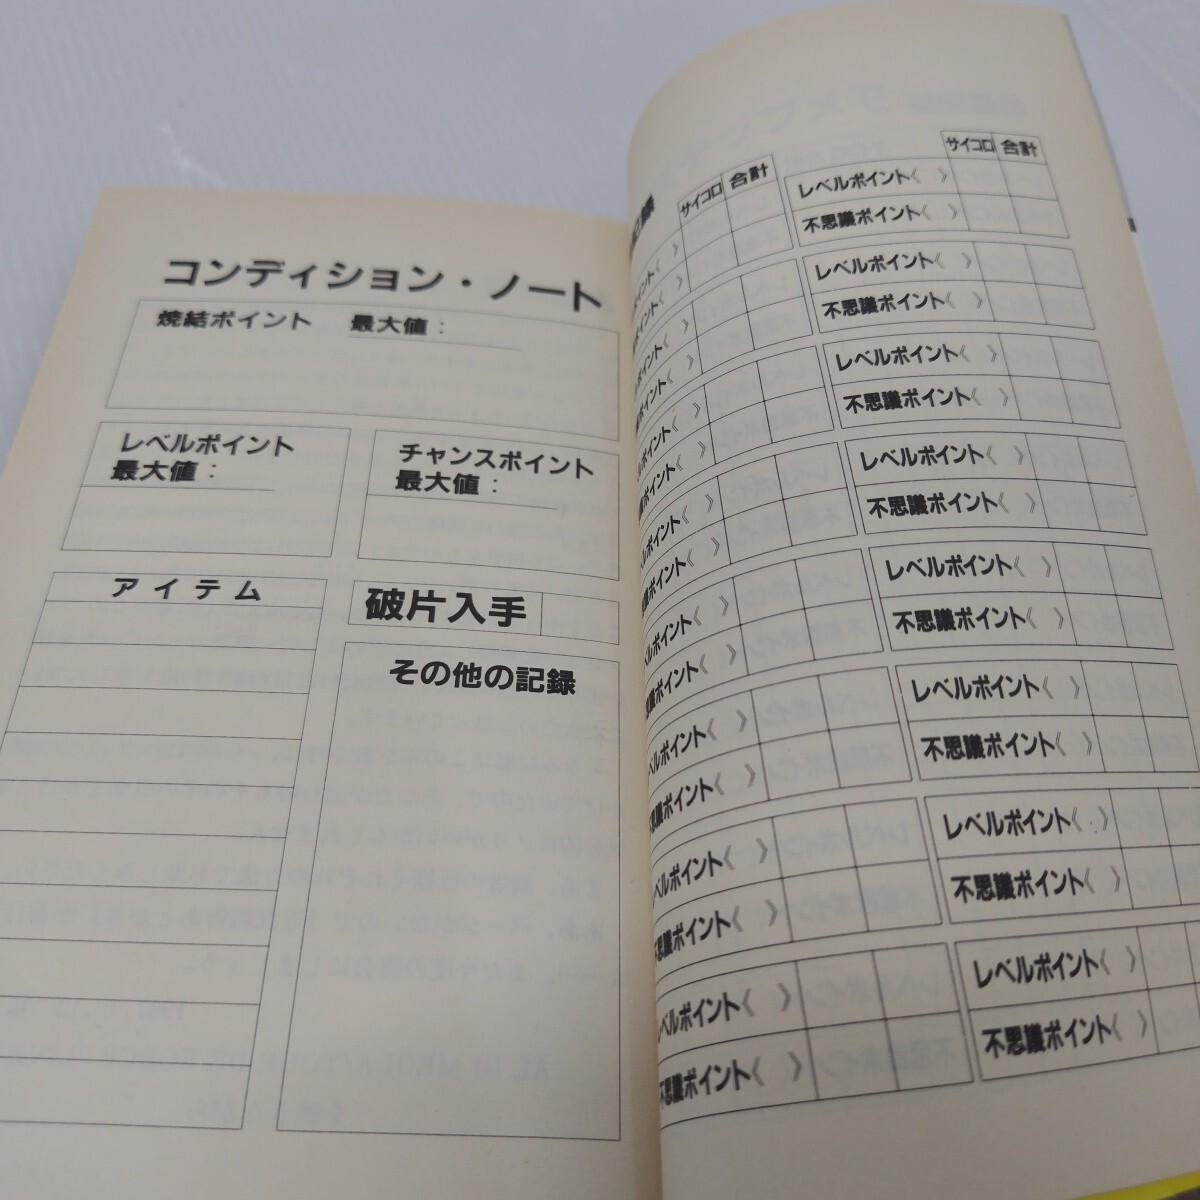 コンディション・ノート
焼結ポイント　最大値：
レベルポイント
最大値：
チャンスポイント
最大値：
アイテム
破片入手
その他の記録
サイコロ 合計
レベルポイント《　》
不思議ポイント《　》
レベルポイント《　》
不思議ポイント《　》
レベルポイント《　》
不思議ポイント《　》
サイコロ 合計
レベルポイント《　》
不思議ポイント《　》
レベルポイント《　》
不思議ポイント《　》
レベルポイント《　》
不思議ポイント《　》
レベルポイント《　》
不思議ポイント《　》
レベルポイント《　》
不思議ポイント《　》
レベルポイント《　》
不思議ポイント《　》
レベルポイント《　》
不思議ポイント《　》
レベルポイント《　》
不思議ポイント《　》